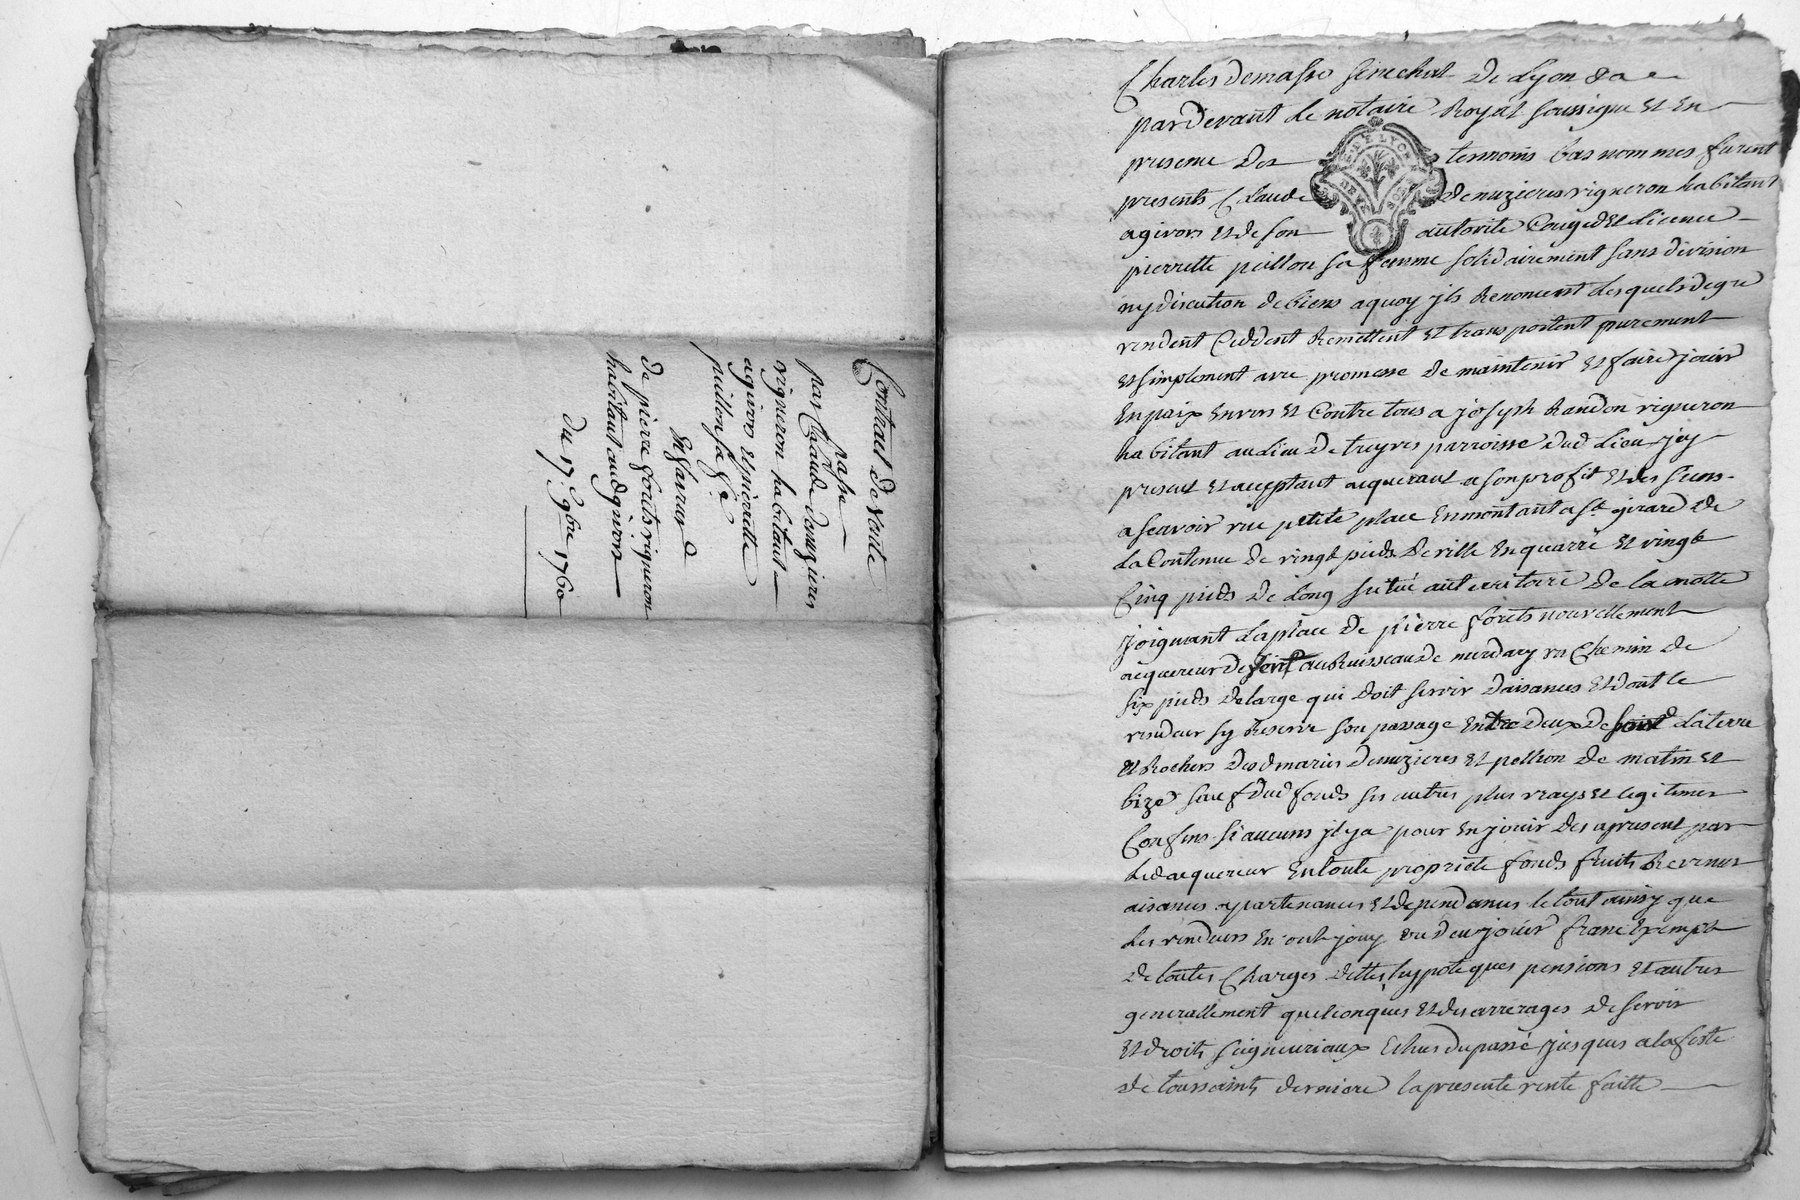 Contrat de vente
passe
par Claude demuzieres
vigneron habitant
a givors et pierrette
poillon sa fe
En faveur
de pierre forets vigneron
habitant aud givors
du 17e 9bre 1760
Charles demasso senechal de Lyon &a
pardevant le notaire Royal soussigne et En
presence des temoins bas nommes furent
presents Claude demuzieres vigneron habitant
a givors et de son autorite Conged et licence
pierrette poillon sa femme solidairement sans division
ny discution de biens a quoy jls Renoncent lesquels de gre
vendent Ceddent Remettent et transportent purement
et simplement avec promesse de maintenir et faire jouir
En paix Envers et Contre tous a joseph Randon vigneron
habitant au lieu de treyves parroisse dud lieu jcy
present et acceptant acquerant a son profit et des siens
a scavoir une petite place En montant a st girard de
la Contenue de vingt pieds de ville En quarré et vingt
Cinq pieds de long situé au territoire de la motte
joignant la place de pierre forets nouvellement
acquereur de au Ruisseau de un Chemin de
six pieds de large qui doit servir daisances et dont le
vendeur sy Reserve son passage Entre deux de la terre
et Rochers desd maries demuzieres et poillon de matin et
bize sauf dud fonds ses autres plus vrays et legitimes
Confins si aucuns jl y a pour En jouir des a present par
led acquereur En toute propriete fonds fruits Revenus
aisances apartenances et dependances le tout ainsy que
les vendeurs En ont jouy ou deu jouir franc Exempt
de toutes Charges dettes hypoteques pensions et autres
generallement quelconques et des arrerages de servis
et droits seigneuriaux Echus du passé jusques a la feste
de toussaints derniere la presente vente faitte